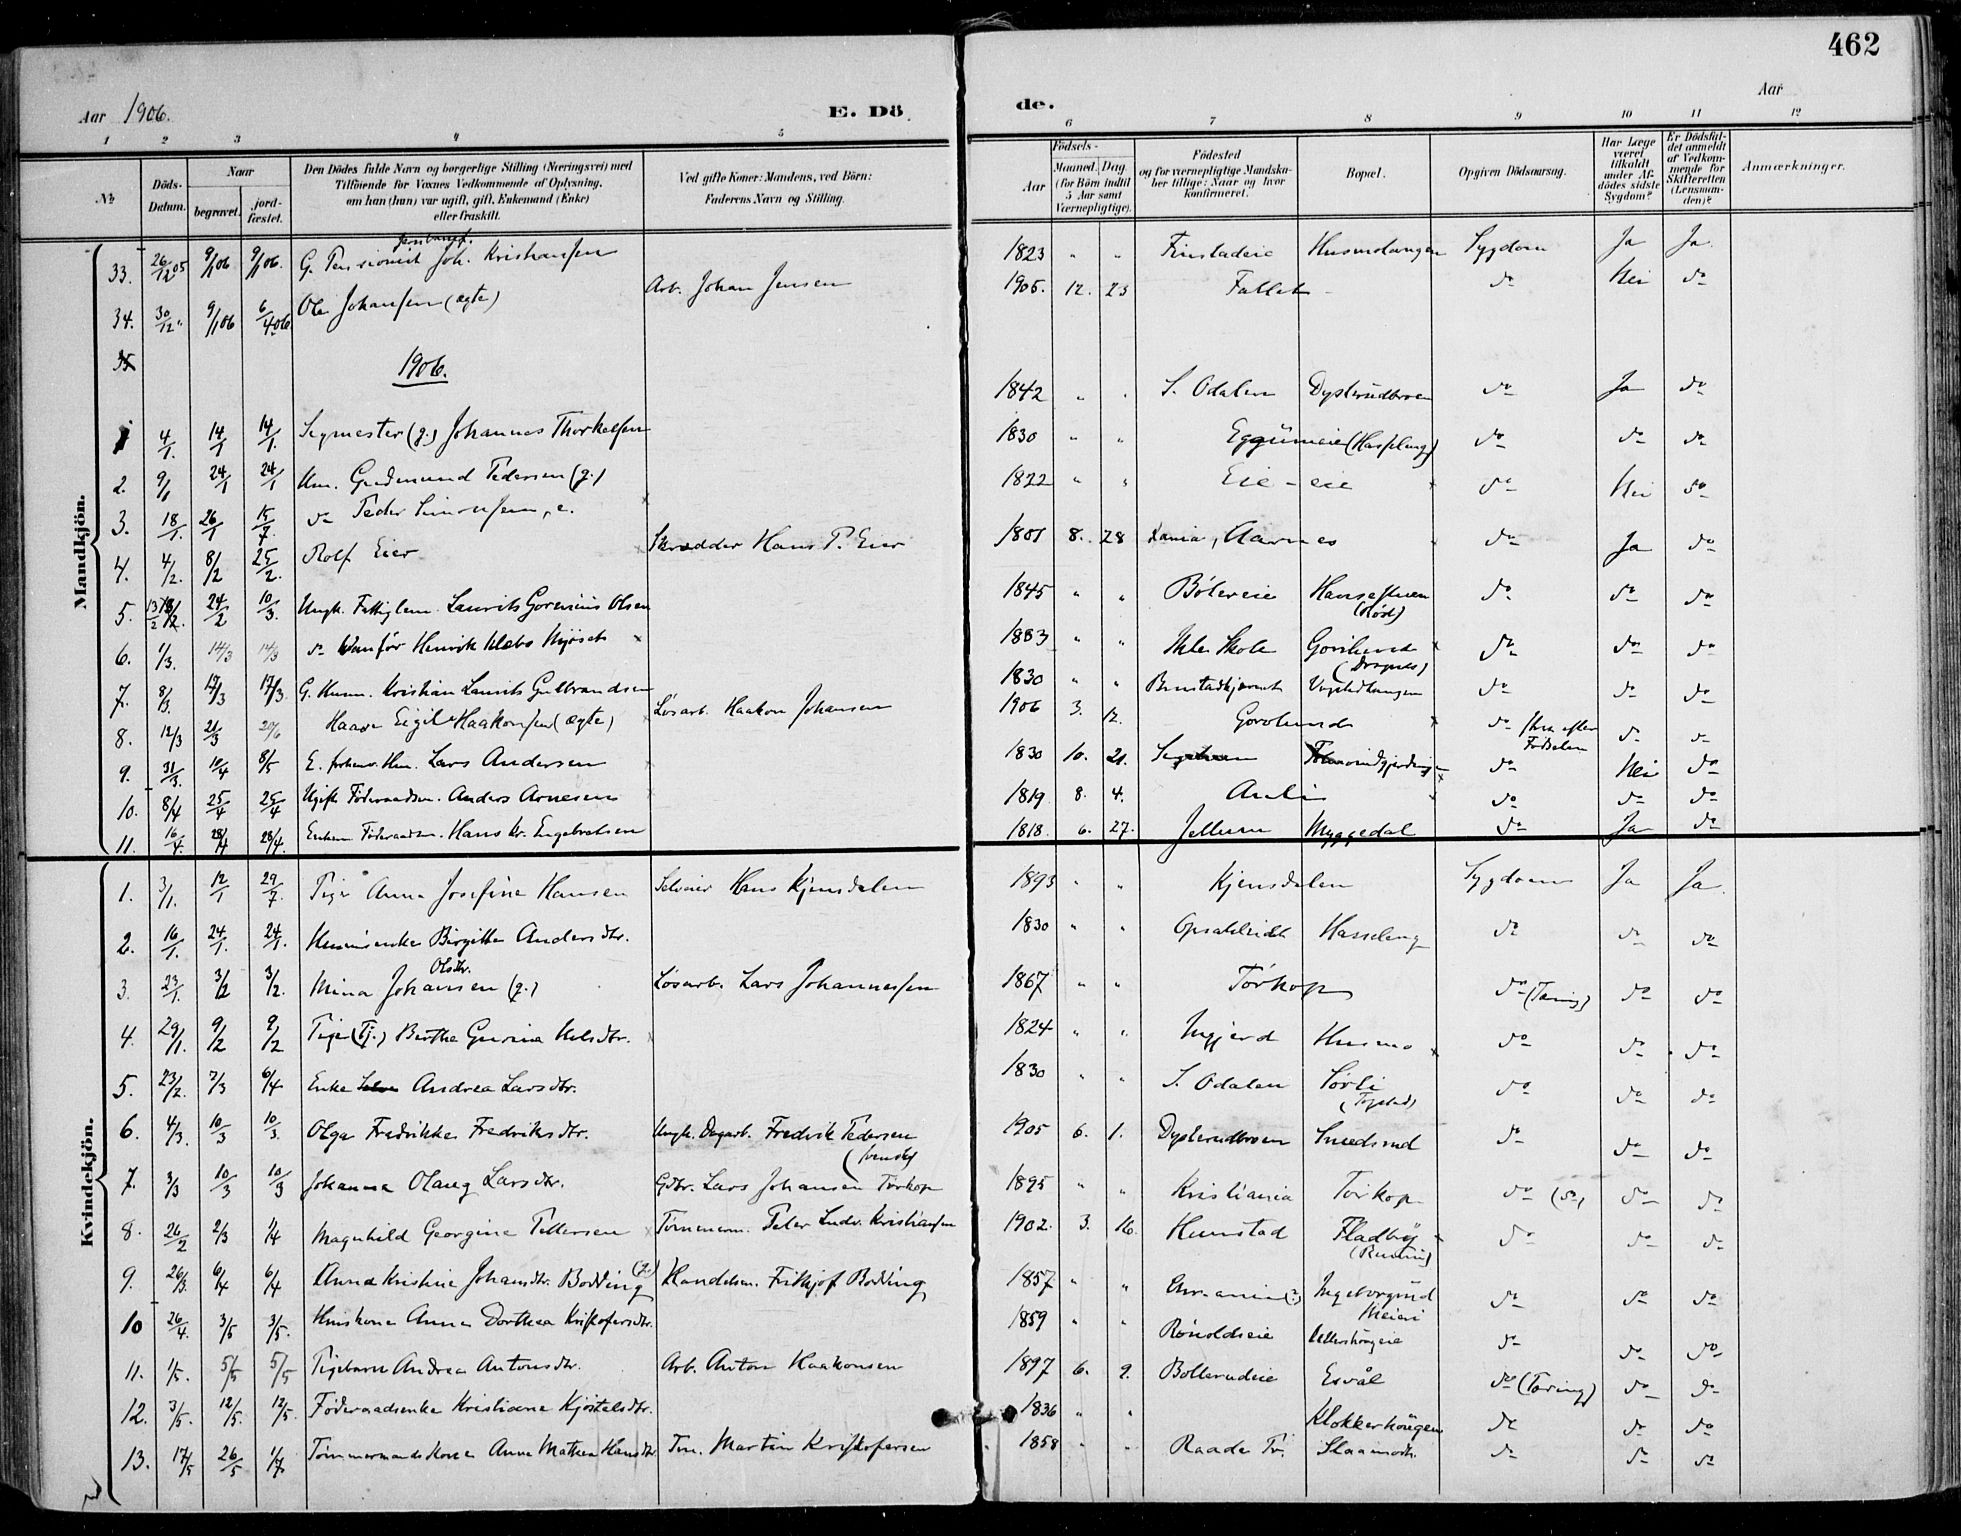 462
Aar 1906. E. Dö de. Aar
1 2 3 4 5 6 7 8 9 10 11 12
No. Döds-Datum. Naar begravet. jord-fæstet. Den Dödes fulde Navn og borgerlige Stilling (Næringsvei) med Tilföiende for Voxnes Vedkommende af Oplysning, om han (hun) var ugift, gift, Enkemand (Enke) eller fraskilt. Ved gifte Koner: Mandens, ved Börn: Faderens Navn og Stilling. Aar Födsels- Maaned. Dag. (for Börn indtil 5 Aar samt Værnepligtige). Födested og for værnepligtige Mandskaber tillige: Naar og hvor konfirmeret. Bopæl. Opgiven Dödsaarsag. Har Læge været tilkaldt under Afdödes sidste Sygdom? Er Dödsfaldet anmeldt af Vedkommende for Skifteretten (Lensmanden)? Anmærkninger.
Mandkjön.
33. 26/12 05 9/1 06 9/1 06. G. Pensionist Joh. Kristiansen 1823 " " Finstadeie Husmolangen Sygdom Ja Ja.
34. 30/12 " 9/1 06 6/4 06 Ole Johansen (ægte) Arb. Johan Jensen 1905. 12. 23 Fallet do Nei do
35
1906.
1 4/1. 14/1 14/1. Sagmester (g.) Johannes Thorkelsen 1842 " " S. Odalen Dysterudbroen do Ja do
2. 9/1 24/1 24/1 Hm. Gudmund Pedersen (g.) 1830 " " Eggumeie (Hasleng) do do do
3. 18/1. 26/1 15/7. do Peder Simonsen, e. 1822 " " Eie - eie do Nei do
4. 4/2. 8/2 25/2. Rolf Eier Skrædder Hans P. Eier 1801 8. 28 Aarnes do Ja do
5. 13/2 24/2 10/3. Ungk. Fattiglem. Laurits Gorenius Olsen 1845 " " Bölereie Hansestuen (Röd) do do do
6. 1/3. 14/3 14/3 do Vanför Henrik Klebo Mjöseth 1883 " " Skole do do do
7. 8/3 19/3 17/3 G. Husm. Kristian Laurits Gulbrandsen 1830 " " do do do
8. 12/3 21/3 20/6 Haavr Eigil Haakonsen (ægte) Lösarb. Haakon Johansen 1906 3. 12. Gorolund do strax efter Födselen do do
9. 31/3. 10/4 8/5 E. forhenv. Hm. Lars Andersen 1830 10. 21. do Nei do
10. 8/4 25/4 25/4 Ugift Föderaadsm. Anders Arnesen 1819 8. 4. Aulie do do do
11. 16/4. 28/4 28/4. Enkem. Föderaadsm. Hans Kr. Engebretsen 1818. 6. 27. Jellum Myggedal do Ja do
Kvindekjön.
1. 3/1. 12/1 29/7. Pige Anna Josefine Hansen Selveier Hans Kjensdalen 1893 " " Kjensdalen Sygdom Ja Ja.
2. 16/1. 24/1. 24/1. Husmsenke Birgitte Andersdtr. 1830 " " Hasseleng do do do
3. 23/1. 3/2 3/2. Mina Johansen Olsdtr. (g.) Lösarb. Lars Johannessen 1867 " " Törkop do (Tæring) do do
4. 29/1. 9/2 9/2 Pige (Tj.) Berthe Gurina Nelsdtr. 1824 " " Ingjerd Husmo do do do
5. 23/2. 7/3 6/4 Enke Andrea Larsdtr. 1830 " " S. Odalen Sörli (Fogstad) do do do
6. 4/3. 10/3 10/3. Olga Fredrikke Fredriksdtr. Ungk. Dagarb. Fredrik Pedersen (svensk) 1905 6. 1. Dysterudbroen Smedsrud do do do
7. 3/3 10/3 10/3 Johanna Olaug Larsdtr. Gbr. Lars Johansen Törkop 1895 " " Kristiania Törkop do (do) do do
8. 26/2 2/3 1/4 Magnhild Georgine Pettersen Tömmerm. Peter Ludv. Kristiansen 1902. 3. 16. Hemstad Fladby do do do
9. 26/3. 6/4 6/4 Anna Kristine Johansdtr. Bodding (g.) Handelsm. Frithjof Bodding 1857 " " Chr.ania (?) Ingeborgrud Meieri do do do
10 26/4. 3/5 3/5. Huskone Anna Dorthea Kristofersdtr. 1859 " " Rönoldseie Ullershougeie do do do
11. 1/5. 5/5 5/5 Pigebarn Andrea Antonsdtr. Arb. Anton Haakonsen 1897 6. 9. Bollerudeie Esvål do (Tæring) do do
12. 3/5. 12/5. 12/5. Föderaadsenke Kristiane Kjöstelsdtr. 1836 " " Klokkerhougen do do do
13. 17/5 26/5 1/7. Tömmermandskone Anne Mathea Hansdtr. Tm. Martin Kristofersen 1858 " " Raade Pr. Slaamodtr. do do do